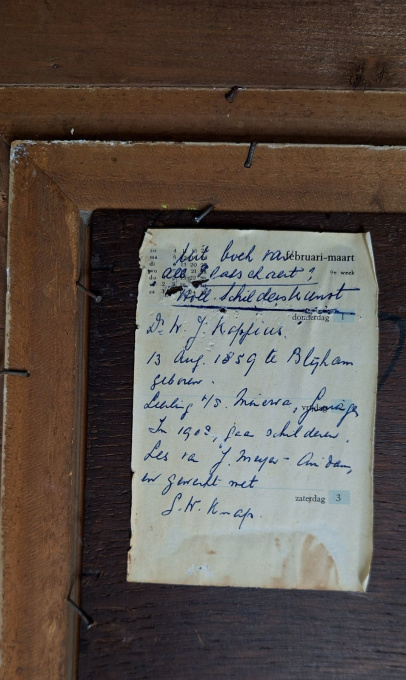 Uit boek van februari-maart
alb. Plasschaert? 9e week
Holl. Schilderkunst
donderdag 1
Dr W. J.
13 Aug. 1859 te
geboren.
Leerling v/d. Minerva, Groningen
vrijdag
In 1902, gaan schilderen.
Les van J. Meyer - A'dam,
en gewerkt met
zaterdag 3
G.W. Knap.